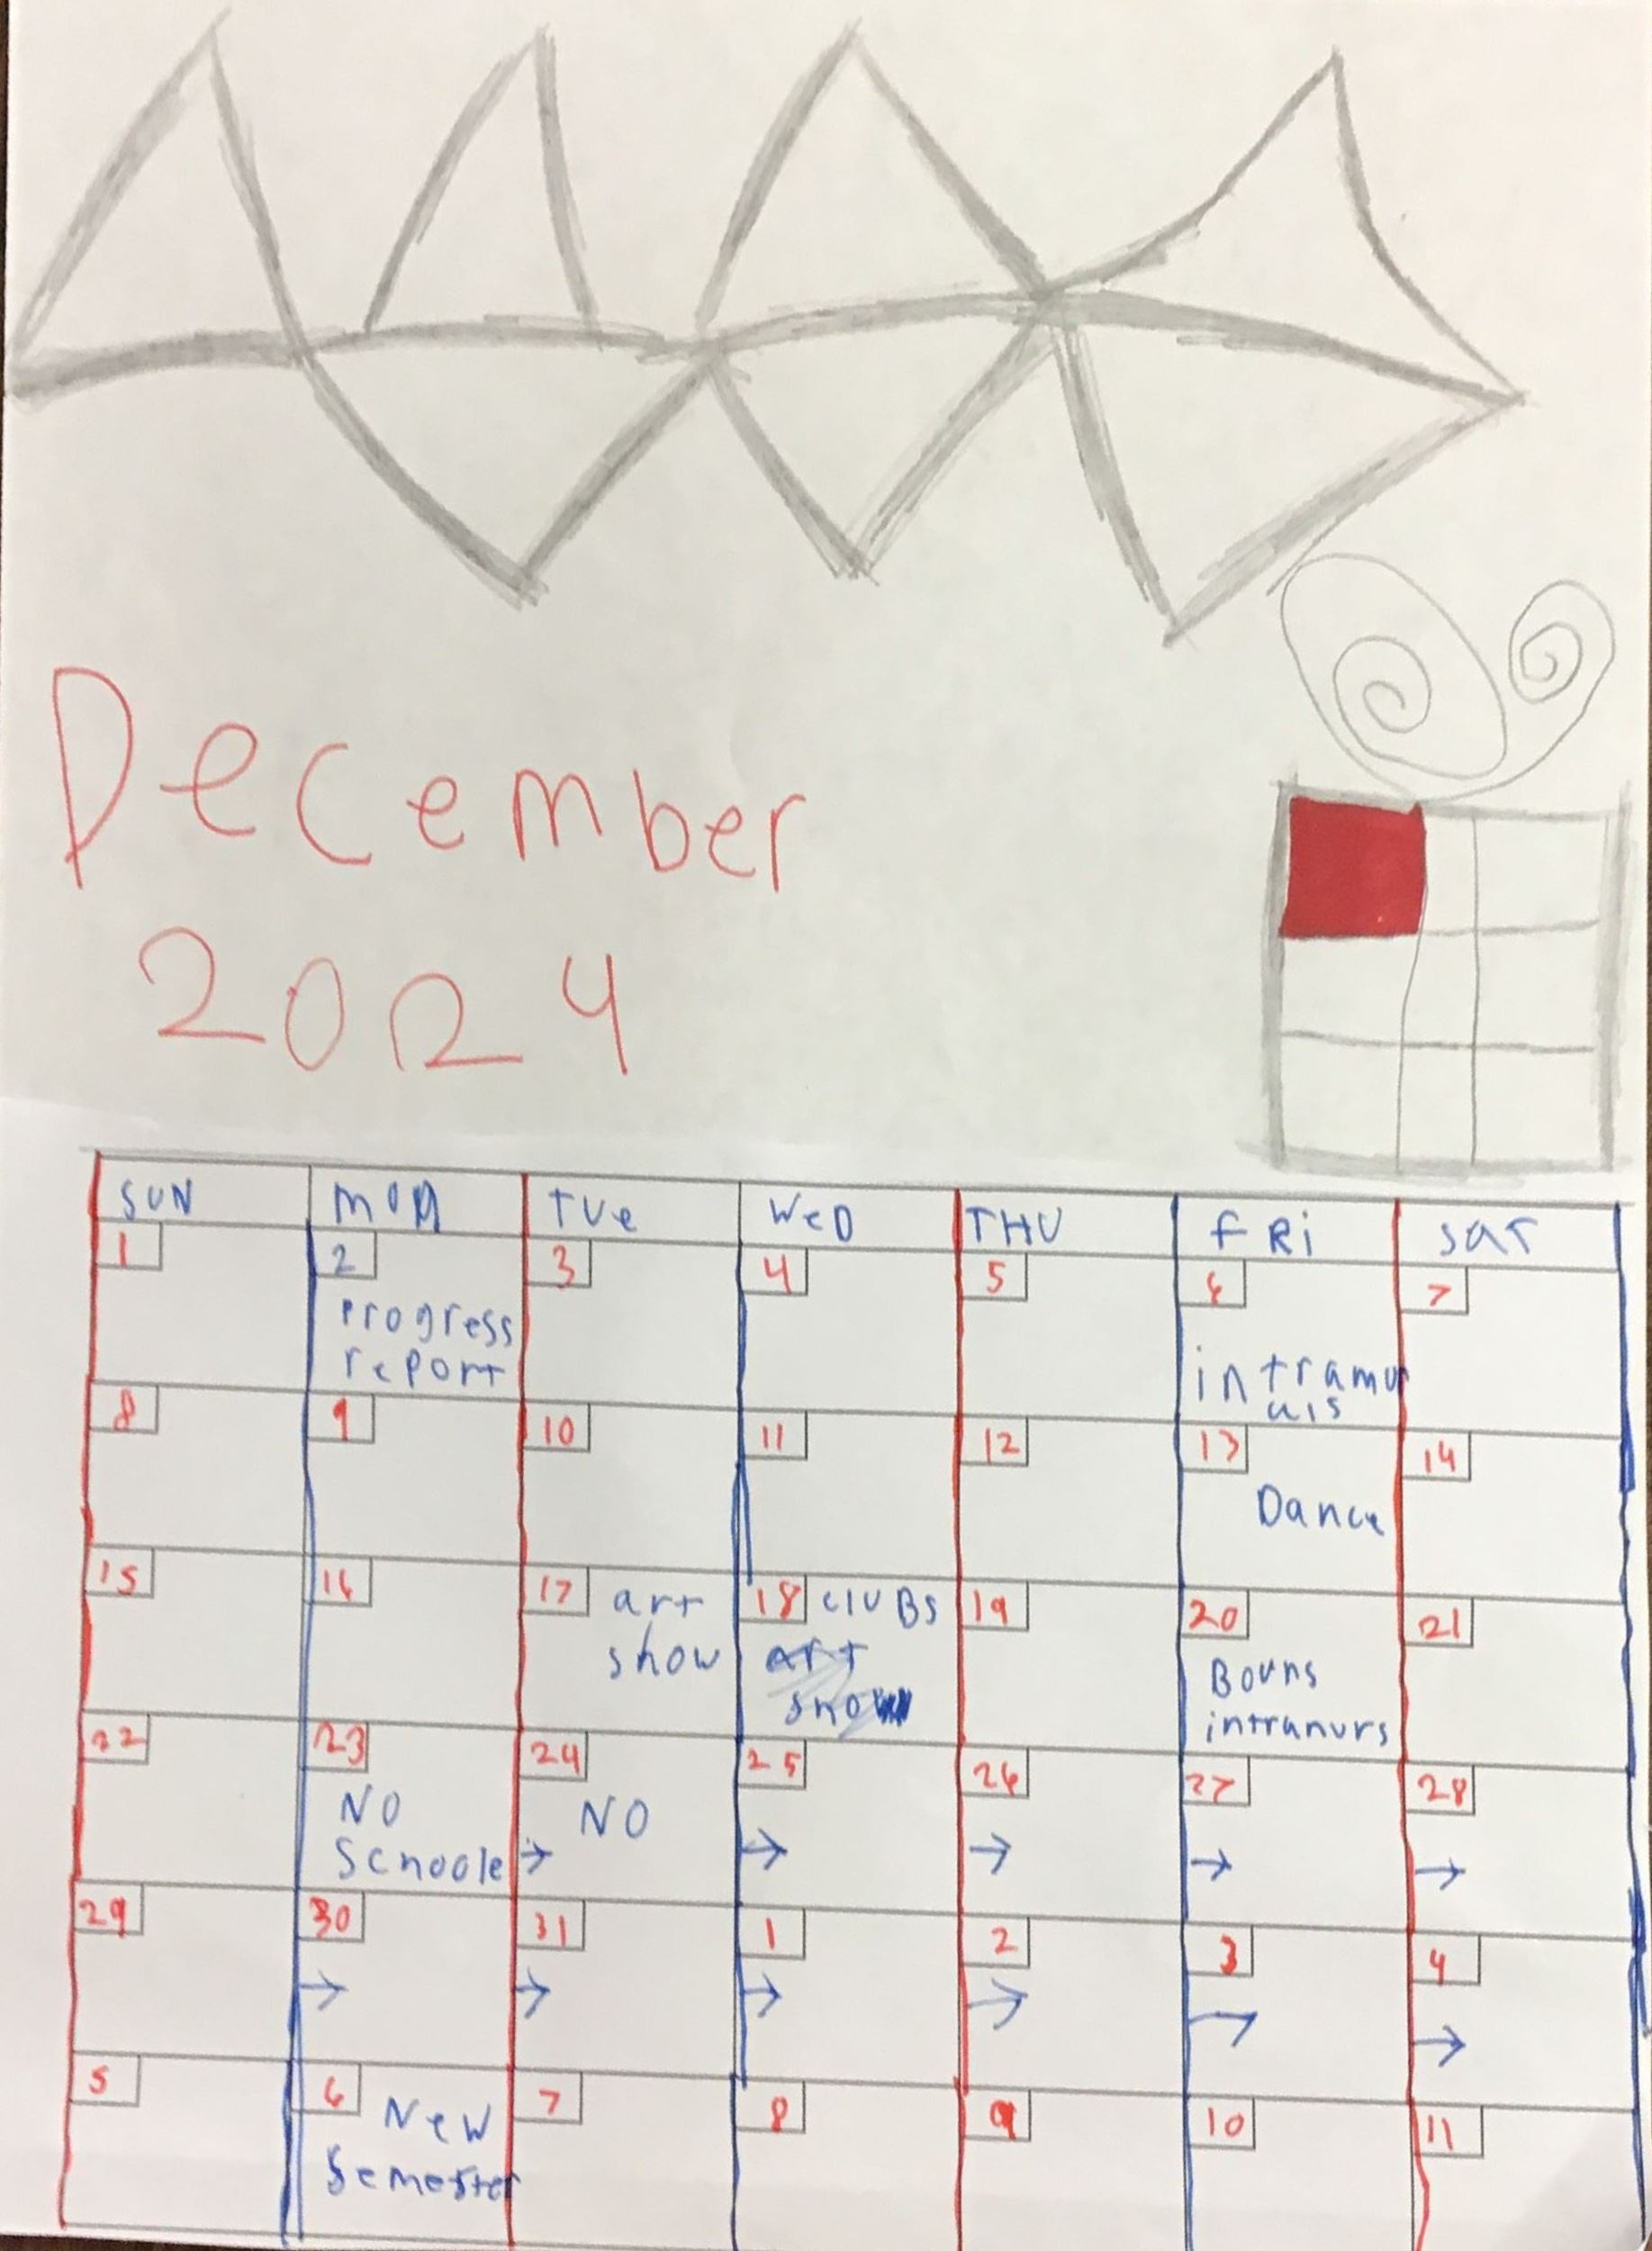 December
2024
SUN MON TUe WeD THU fRi saT
1 2 3 4 5 6 7
Progress
report
intramu
uls
8 9 10 11 12 13 14
Dance
15 16 17 art 18 clUBs 19 20 21
show art
show
Bouns
intranurs
22 23 24 25 26 27 28
NO NO
Schoole → → → → →
29 30 31 1 2 3 4
→ → → → → →
5 6 New 7 8 9 10 11
Semester